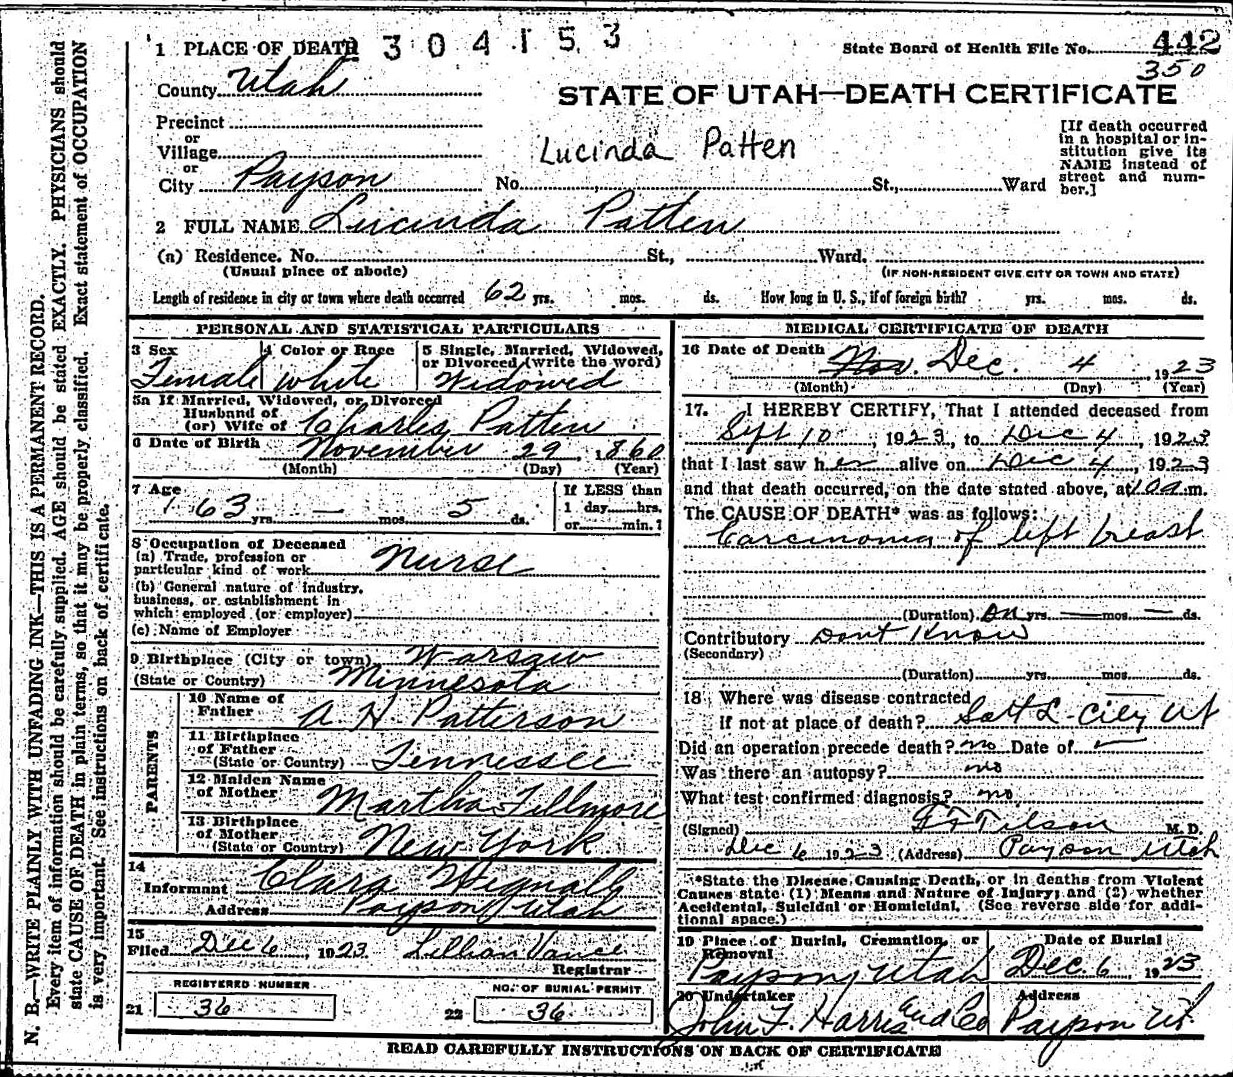 1 PLACE OF DEATH 2304153 State Board of Health File No. 442
350
County Utah
STATE OF UTAH—DEATH CERTIFICATE
Precinct
or
Village
or
City Payson No. St., Ward
Lucinda Patten
[If death occurred
in a hospital or in-
stitution give its
NAME instead of
street and num-
ber.]
2 FULL NAME Lucinda Patten
(a) Residence. No. St., Ward.
(Usual place of abode) (IF NON-RESIDENT GIVE CITY OR TOWN AND STATE)
Length of residence in city or town where death occurred 62 yrs. mos. ds. How long in U. S., if of foreign birth? yrs. mos. ds.
PERSONAL AND STATISTICAL PARTICULARS
3 Sex 4 Color or Race 5 Single, Married, Widowed,
or Divorced (write the word)
Female White Widowed
5a If Married, Widowed, or Divorced
Husband of
(or) Wife of Charles Patten
6 Date of Birth November 29, 1860
(Month) (Day) (Year)
7 Age 63 yrs. — mos. 5 ds.
If LESS than
1 day hrs.
or min.?
8 Occupation of Deceased
(a) Trade, profession or
particular kind of work Nurse
(b) General nature of industry,
business, or establishment in
which employed (or employer)
(c) Name of Employer
9 Birthplace (City or town) Warsaw
(State or Country) Minnesota
PARENTS
10 Name of
Father A. H. Patterson
11 Birthplace
of Father
(State or Country) Tennessee
12 Maiden Name
of Mother Martha Fillmore
13 Birthplace
of Mother
(State or Country) New York
14
Informant Clara Wignall
Address Payson Utah
15
Filed Dec 6, 1923 Lillian Vance
Registrar
REGISTERED NUMBER NO. OF BURIAL PERMIT
21 36 22 36
MEDICAL CERTIFICATE OF DEATH
16 Date of Death Nov. Dec. 4 1923
(Month) (Day) (Year)
17. I HEREBY CERTIFY, That I attended deceased from
Sept 10, 1923, to Dec 4, 1923
that I last saw her alive on Dec 4, 1923
and that death occurred, on the date stated above, at 10 a m.
The CAUSE OF DEATH* was as follows:
Carcinoma of left breast
(Duration) yrs. — mos. — ds.
Contributory Dont Know
(Secondary)
(Duration) yrs. mos. ds.
18 Where was disease contracted
if not at place of death? Salt L- City Ut
Did an operation precede death? no Date of
Was there an autopsy? no
What test confirmed diagnosis? no
(Signed) Tilson M. D.
Dec 6 1923 (Address) Payson Utah
*State the Disease Causing Death, or in deaths from Violent
Causes state (1) Means and Nature of Injury; and (2) whether
Accidental, Suicidal or Homicidal. (See reverse side for addi-
tional space.)
19 Place of Burial, Cremation, or
Removal Date of Burial
Payson, Utah Dec. 6, 1923
20 Undertaker Address
John F. Harris and Co Payson Ut.
READ CAREFULLY INSTRUCTIONS ON BACK OF CERTIFICATE
N. B.—WRITE PLAINLY WITH UNFADING INK—THIS IS A PERMANENT RECORD.
Every item of information should be carefully supplied. AGE should be stated EXACTLY. PHYSICIANS should
state CAUSE OF DEATH in plain terms, so that it may be properly classified. Exact statement of OCCUPATION
is very important. See instructions on back of certificate.